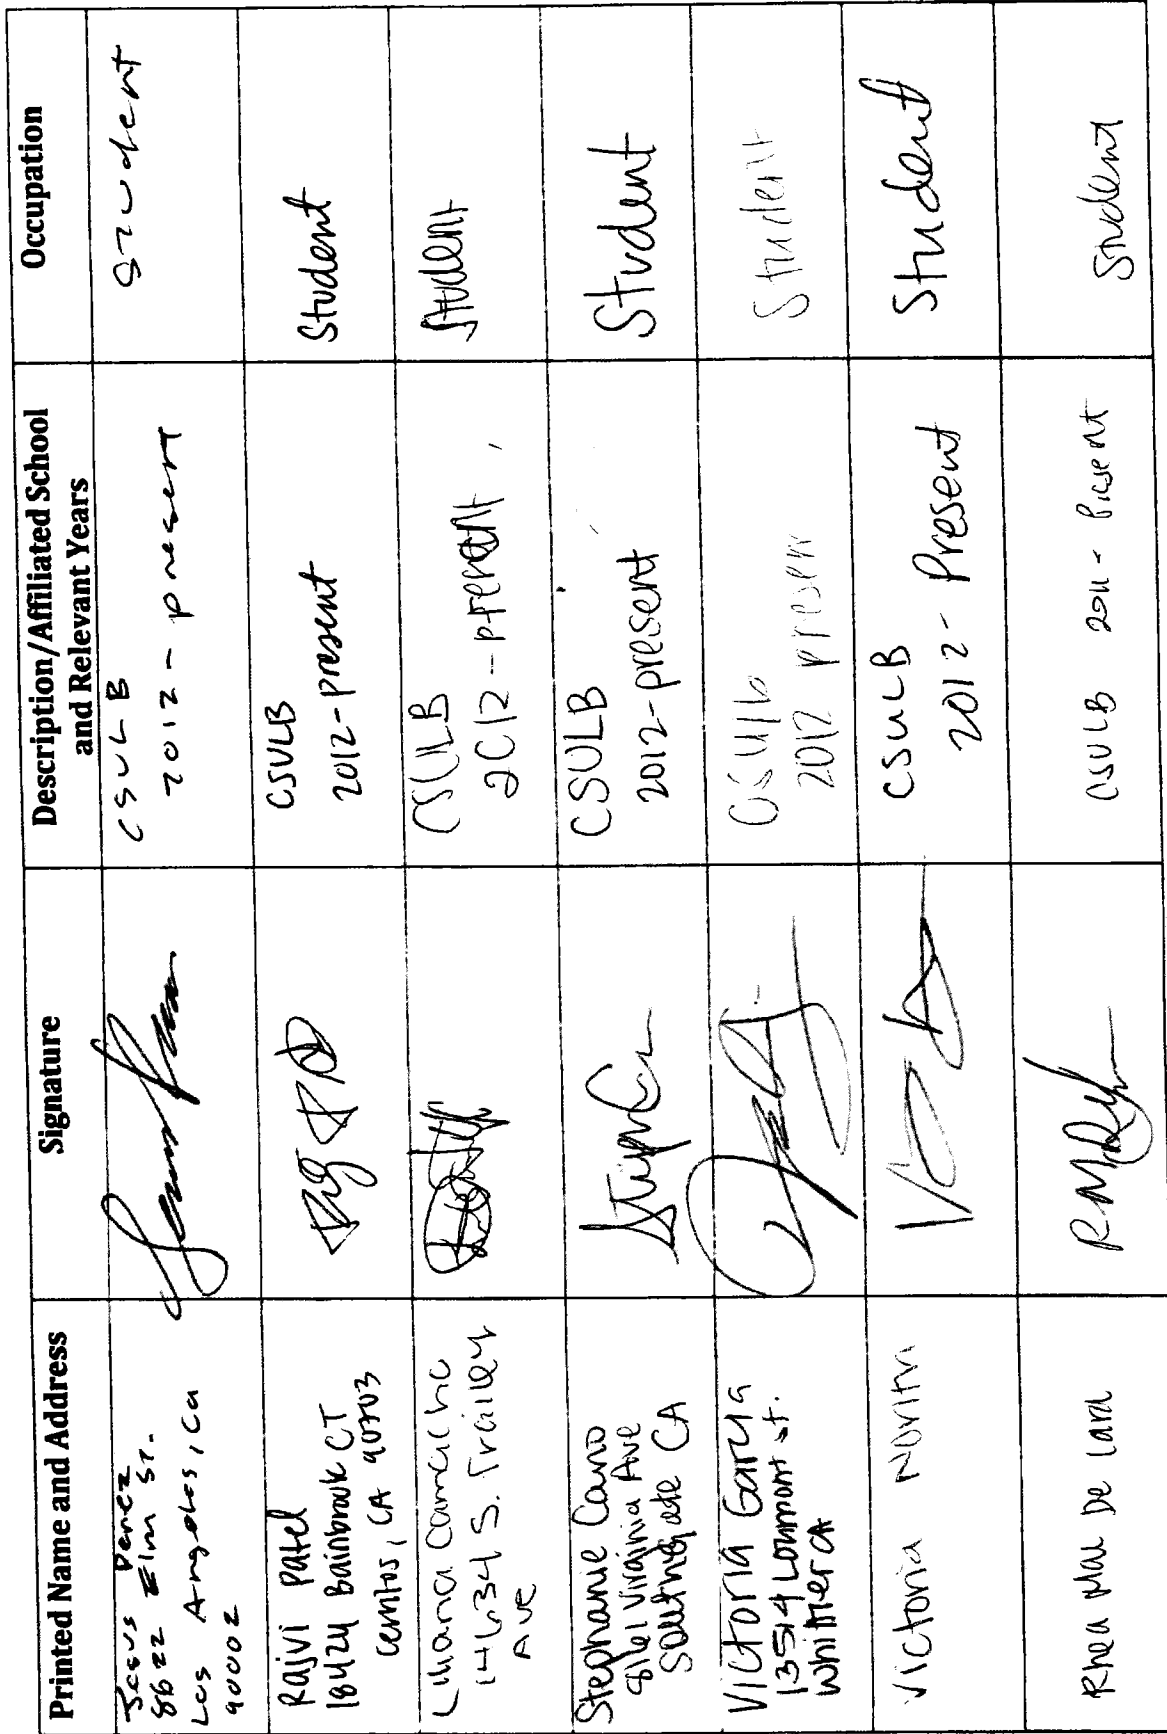 Printed Name and Address
Signature
Description/Affiliated School
and Relevant Years
Occupation
Jesus Perez
8622 Elm St.
Los Angeles, Ca
90002
CSULB
2012 - present
Student
Rajvi Patel
18424 Bainbrook CT
Cerritos, CA 90703
CSULB
2012 - present
Student
Liliana Camacho
14634 S. Frailey
Ave
CSULB
2012 - present
Student
Stephanie Cano
Virginia Ave
Southgate CA
CSULB
2012 - present
Student
Victoria Garcia
13514 st.
Whittier CA
CSULB
2012 present
Student
Victoria
CSULB
2012 - Present
Student
Rhea Mae De Lara
CSULB 2011 - Present
Student